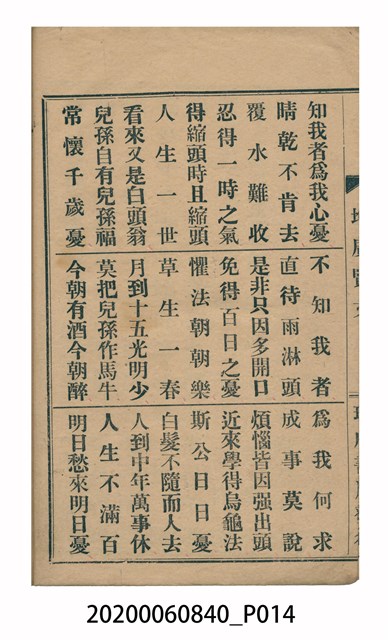 知我者爲我心憂 不知我者 爲我何求
晴乾不肯去 直待雨淋頭 成事莫說
覆水難收 是非只因多開口 煩惱皆因强出頭
忍得一時之氣 免得百日之憂 近來學得烏龜法
得縮頭時且縮頭 懼法朝朝樂 斯公日日憂
人生一世 草生一春 白髮不隨而人去
看來又是白頭翁 月到十五光明少 人到中年萬事休
兒孫自有兒孫福 莫把兒孫作馬牛 人生不滿百
常懷千歲憂 今朝有酒今朝醉 明日愁來明日憂
20200060840_P014